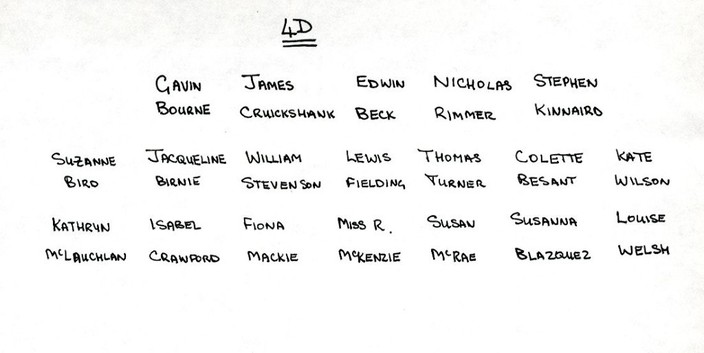 4D
GAVIN JAMES EDWIN NICHOLAS STEPHEN
BOURNE CRUICKSHANK BECK RIMMER KINNAIRD
SUZANNE JACQUELINE WILLIAM LEWIS THOMAS COLETTE KATE
BIRD BIRNIE STEVENSON FIELDING TURNER BESANT WILSON
KATHRYN ISABEL FIONA MISS R. SUSAN SUSANNA LOUISE
McLAUCHLAN CRAWFORD MACKIE McKENZIE McRAE BLAZQUEZ WELSH